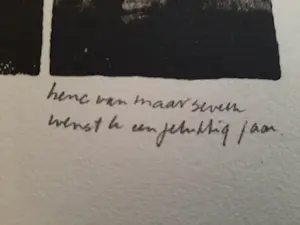 henc van maarseveen
wenst u een gelukkig jaar